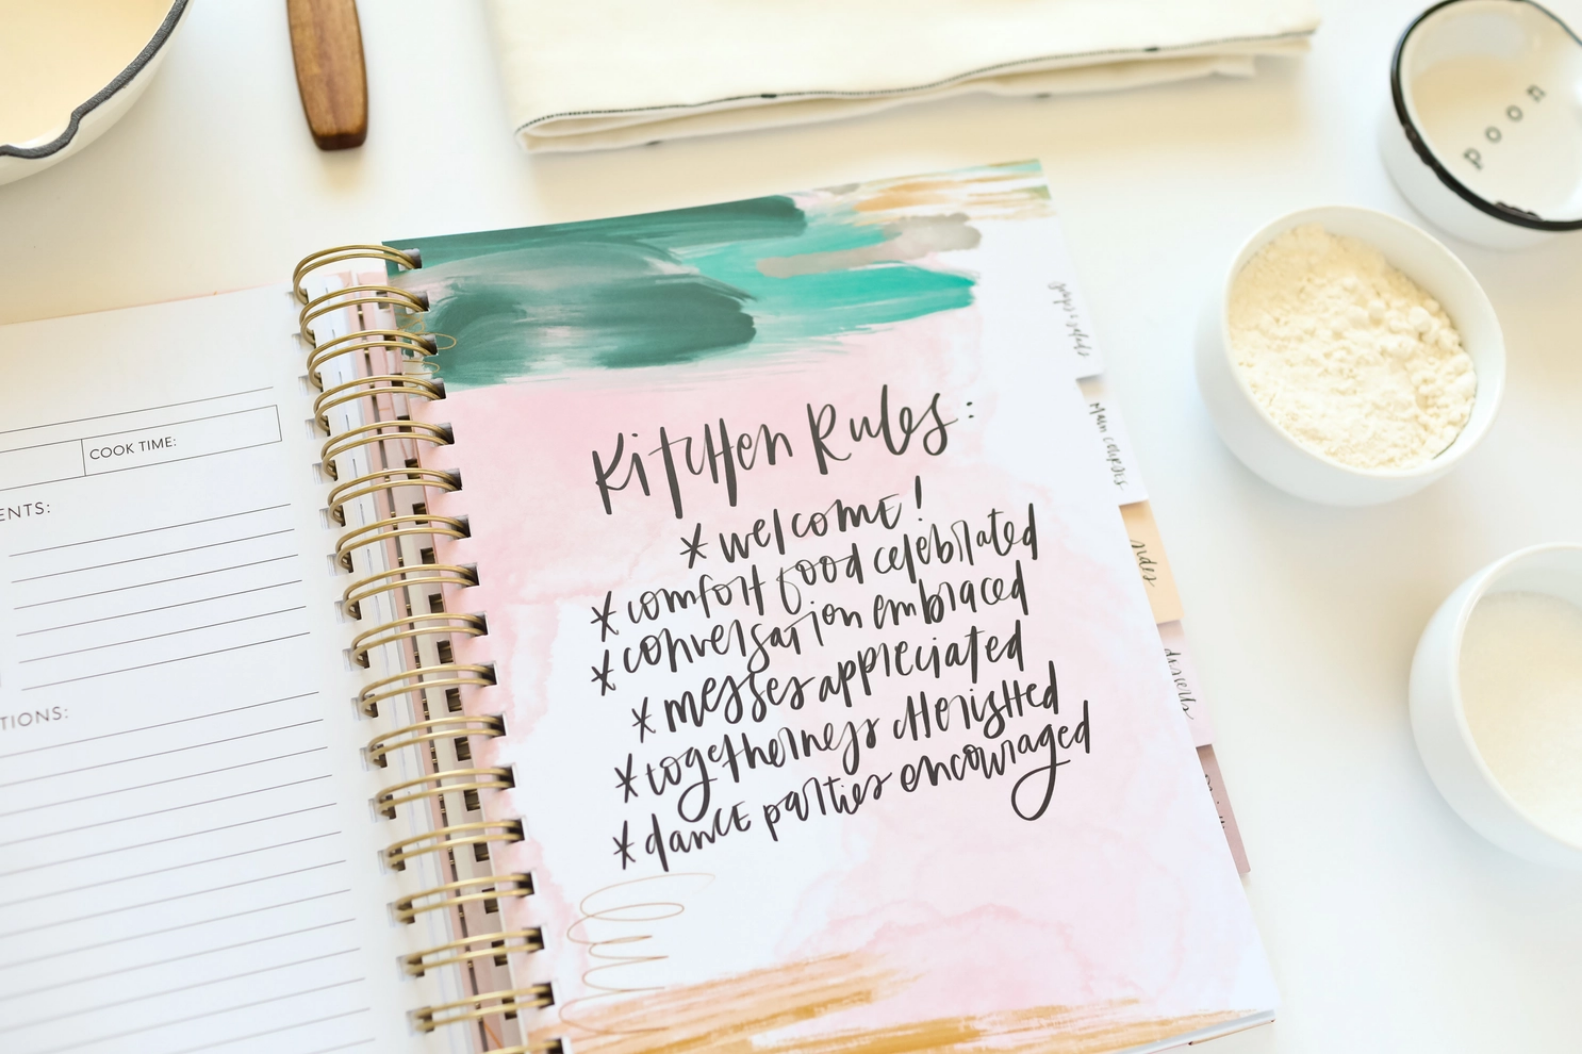 COOK TIME:
ENTS:
TIONS:
Kitchen Rules:
* welcome!
* comfort food celebrated
* conversation embraced
* messes appreciated
* togetherness cherished
* dance parties encouraged
soups & salads
Main courses
sides
desserts
poon